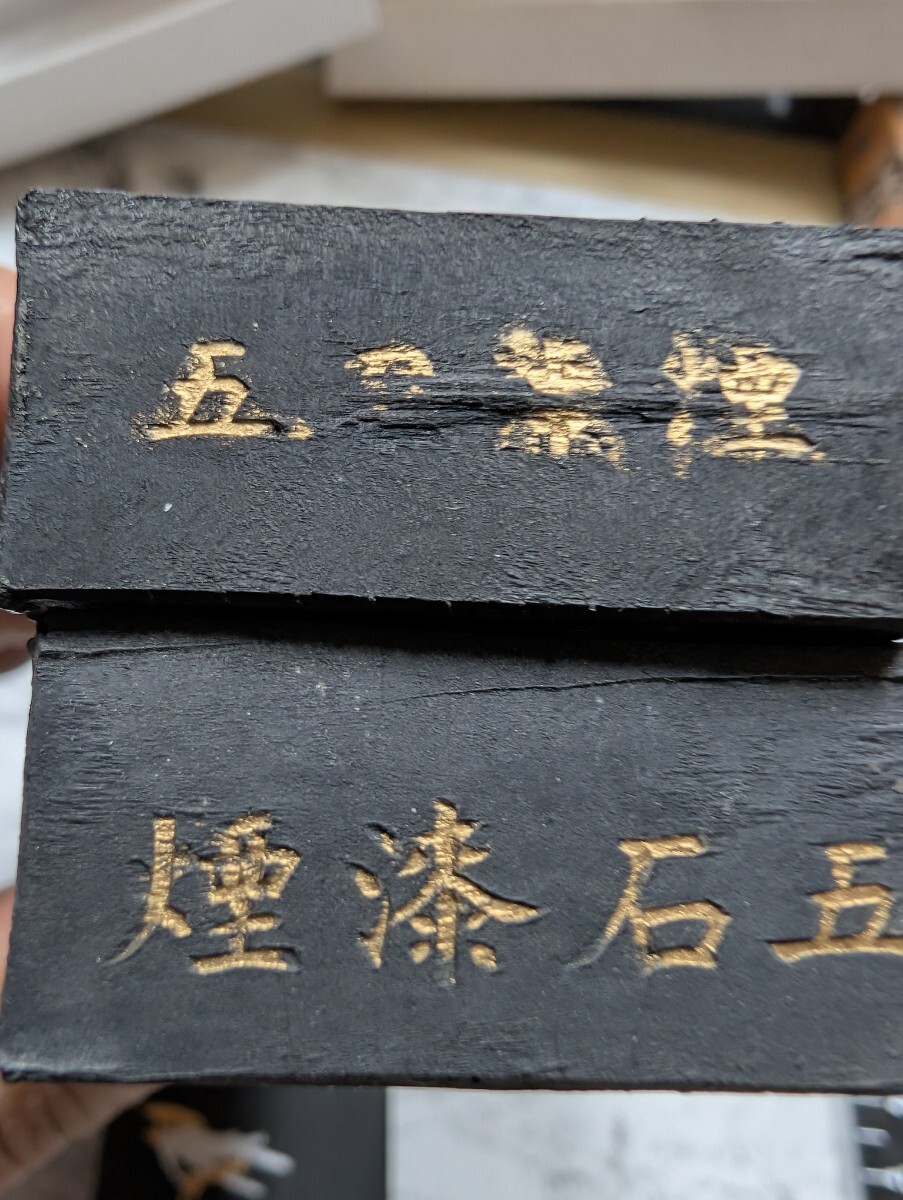 五石漆煙
煙漆石五